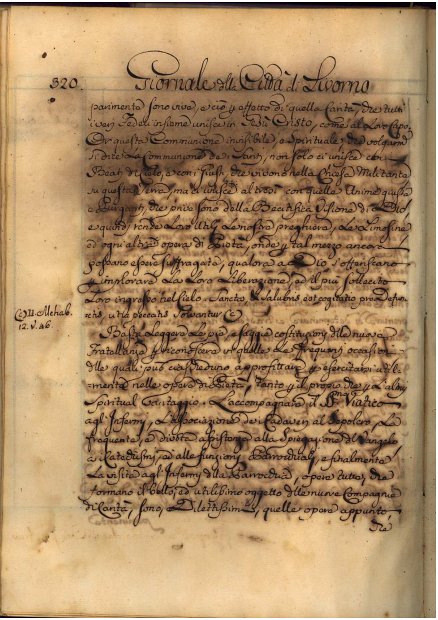 320.
Giornale della Città di Livorno
parimente sono vive, e ciò p effetto di quella Carità, che tutti
i veri Fedeli insieme unisce in Gesù Cristo, come al Loro Capo.
Or questa Communione invisibile, e Spirituale, che volgarm
si dice La Communione de Santi, non solo ci unisce con
Beati di Cielo, e con i Giusti, che vivono nella Chiesa Militante
su questa Terra, ma ci unisce altresì con quelle Anime
Purganti, che prive sono della Beatifica Visione di Dio
e quindi rende Loro Utili Le nostre preghiere, Le Limosine
ed ogni altra opera di Pietà, onde p tal mezzo ancora
possano essere suffragate, qualora a Dio s'offeriscano
p implorare La Loro Liberazione, ed il più sollecito
Loro ingresso nel Cielo. Sancta, & salubris est cogitatio pro Defunctis
ut a peccatis solvantur
II. Machab.
12. V. 46.
Basti Leggere Le pie, e saggie costituzioni della nuova
Fratellanza p riconoscere in quelle Le frequenti occasioni
delle quali può ciascheduno approfittarsi p esercitarsi utilmente
nelle opere di Pietà, tanto p il proprio, che p L'altrui
Spiritual Vantaggio. L'accompagnare il SS.mo Viatico
agl'Infermi, L'associazione dei Cadaveri al Sepolcro, La
frequente, e divota assistenza alla Spiegazione del Vangelo
ai Catechismi, ed alle funzioni Parrocchiali, e finalmente
La visita agl'Infermi della Parrocchia, opere tutte, che
formano il bello, ed utilissimo oggetto delle nuove Compagnie
di Carità, sono, Dilettissimi, quelle opere appunto